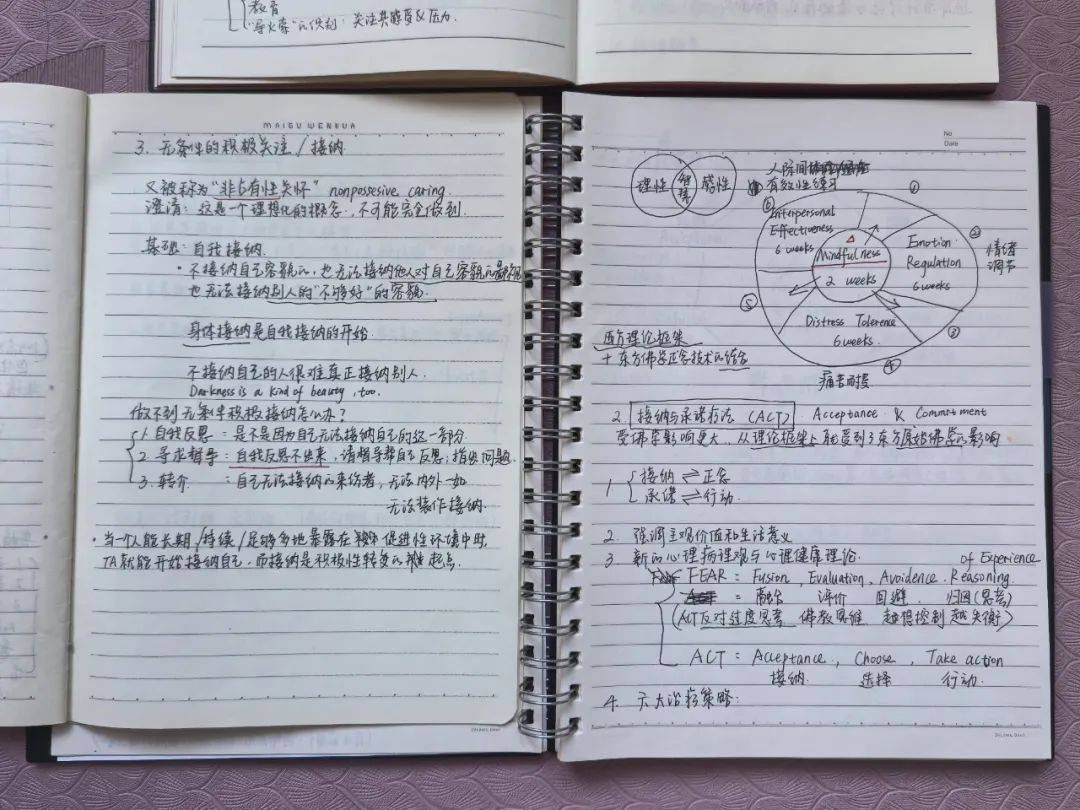 教育
"导火索"的识别：关注其
MAIGU WENHUA
3. 无条件的积极关注/接纳
又被称为"非占有性关怀" nonpossesive caring.
澄清：这是一个理想化的概念，不可能完全做到.
基础：自我接纳.
·不接纳自己容貌的，也无法接纳他人对自己容貌的
也无法接纳别人的"不够好"的容貌.
身体接纳是自我接纳的开始.
不接纳自己的人很难真正接纳别人.
Darkness is a kind of beauty, too.
做不到无条件积极接纳怎么办？
1. 自我反思：是不是因为自己无法接纳自己的这一部分
2. 寻求督导：自我反思不出来，请督导帮自己反思，指出问题.
3. 转介：自己无法接纳的来访者，无法内外一如
无法装作接纳.
·当一个人能长期/持续/足够多地暴露在促进性环境中时,
TA就能开始接纳自己，而接纳是积极性转变的起点.
No
Date
理性 智慧 感性
人际间
有效性练习
①
⑥
Interpersonal
Effectiveness
6 weeks
Mindfulness
2 weeks
②
Emotion
Regulation
6 weeks
情绪
调节
⑤
Distress Tolerence
6 weeks.
③
④
痛苦耐受
西方理论框架
+ 东方佛学正念技术的结合
2. 接纳与承诺疗法 (ACT). Acceptance & Commitment
受佛学影响更大，从理论框架上就受到了东方原始佛学的影响
1 接纳 ⇌ 正念
承诺 ⇌ 行动.
2. 强调主观价值和生活意义
3. 新的心理病理观与心理健康理论. of Experience
FEAR = Fusion, Evaluation, Avoidence, Reasoning
= 融合 评价 回避 归因(思考)
(ACT反对过度思考 佛教思维 越想控制越失衡)
ACT = Acceptance, Choose, Take action
接纳 选择 行动.
4. 六大治疗策略: